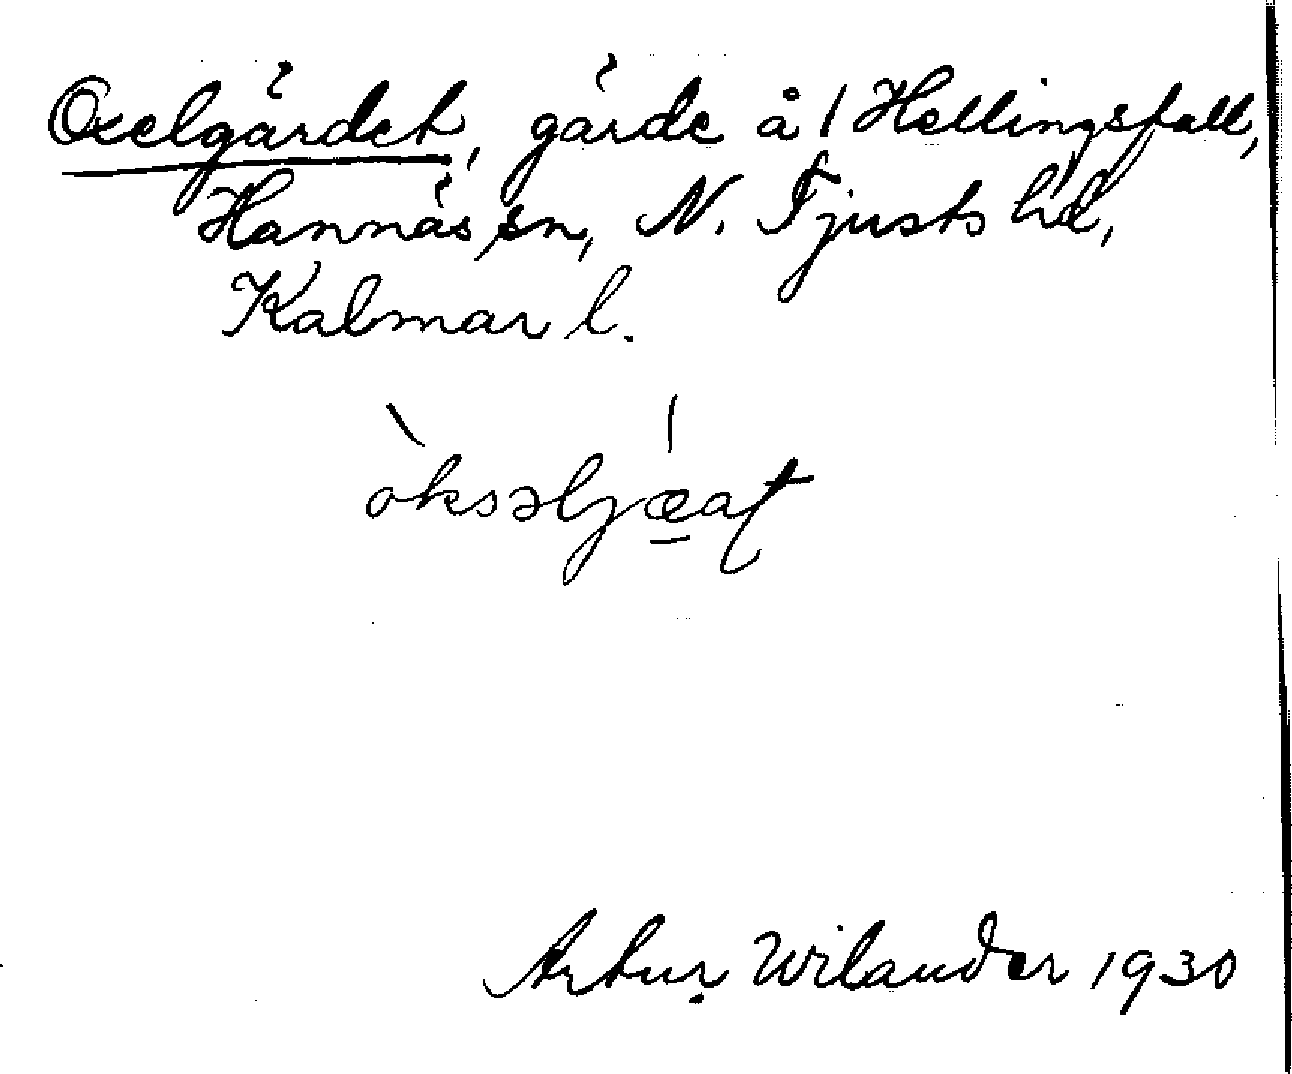 Oxelgärdet, gärde å / Hellingsfall,
Hannäs sn, N. Tjusts hd,
Kalmar l.
òksəljǽ̱at
Artur Wilander 1930